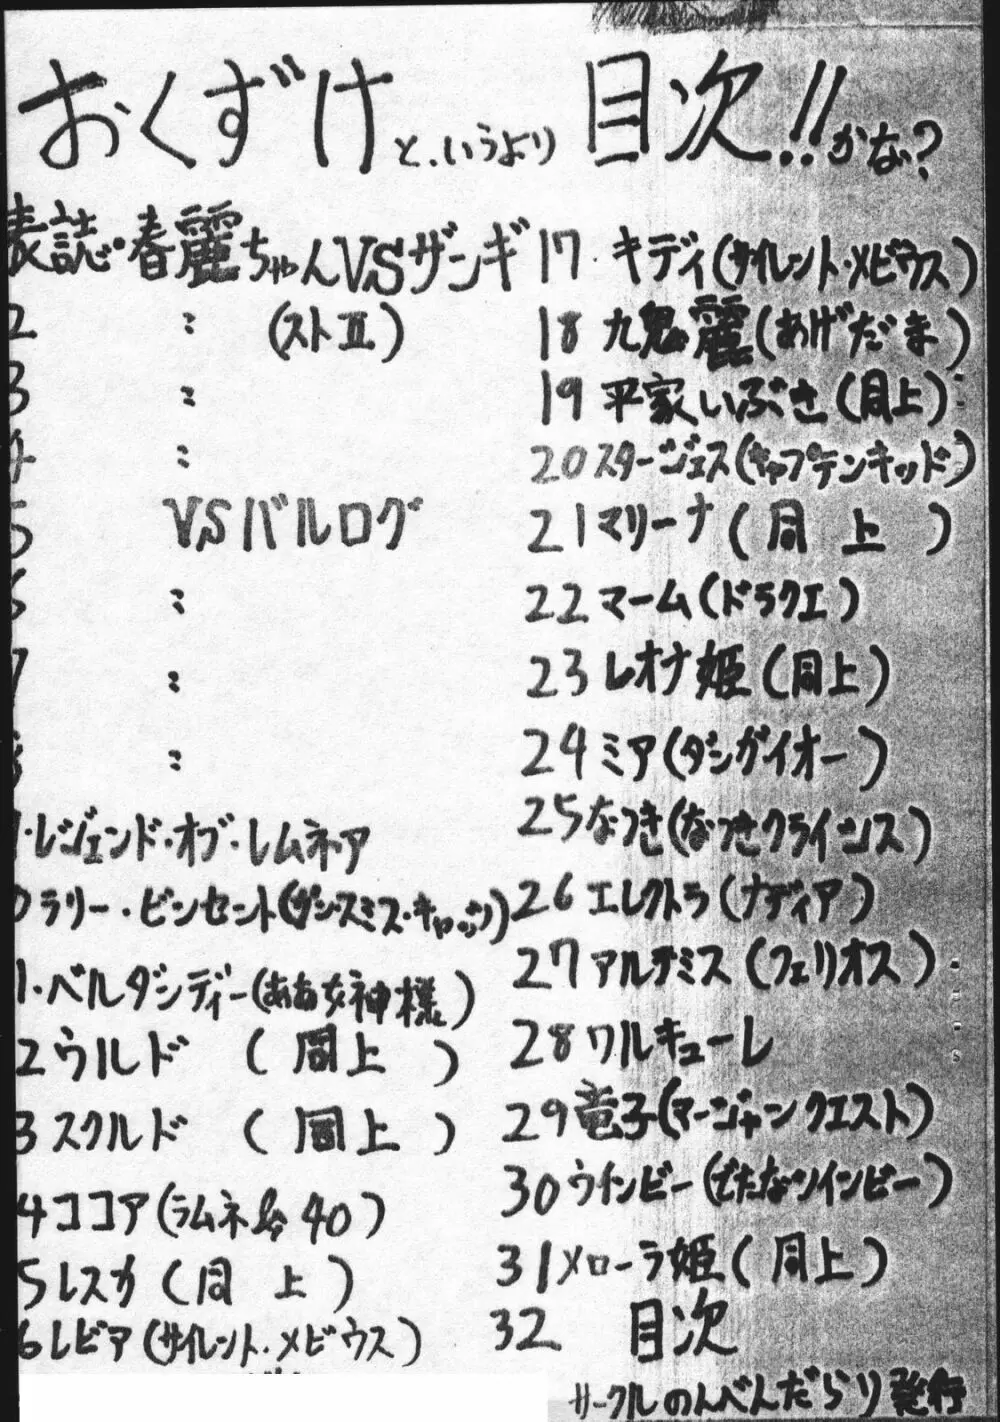 おくずけというより目次!!かな?
表誌・春麗ちゃんVSザンギ
2 〃 (ストⅡ)
3 〃
4 〃
5 VSバルログ
6 〃
7 〃
8 〃
・レジェンド・オブ・レムネア
0 ラリー・ビンセント(ガンスミス・キャッツ)
1・ベルダンディー(ああ女神様)
2 ウルド (同上)
3 スクルド (同上)
4 ココア(ラムネ&40)
5 レスカ (同上)
6 レビア(サイレント・メビウス)
17 キディ(サイレント・メビウス)
18 九鬼麗(あげだま)
19 平家いぶき(同上)
20 スタージェス(キャプテンキッド)
21 マリーナ (同上)
22 マーム(ドラクエ)
23 レオナ姫(同上)
24 ミア(ダンガイオー)
25 なつき(なつきクライシス)
26 エレクトラ(ナディア)
27 アルテミス(フェリオス)
28 ワルキューレ
29 竜子(マージャンクエスト)
30 ウインビー(でたなツインビー)
31 メローラ姫(同上)
32 目次
サークルのんべんだらり発行